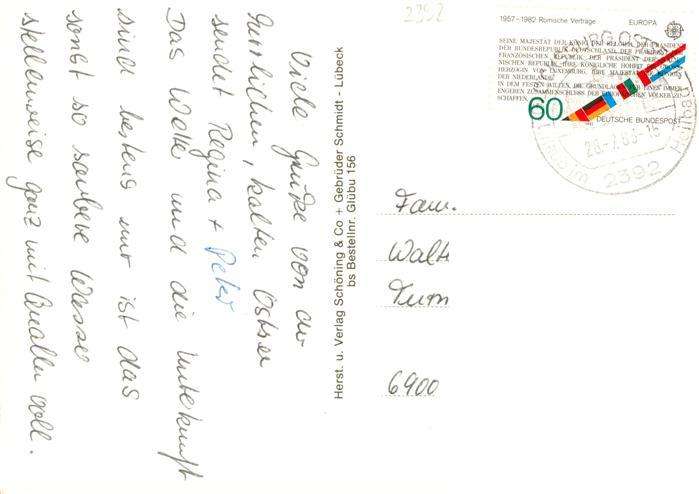 Viele Grüße von der
herrlichen, kalten Ostsee
sendet Regina + Peter
Das Wetter und die Unterkunft
sind bestens nur ist das
sonst so saubere Wasser
stellenweise ganz mit Quallen voll.
Herst. u. Verlag Schöning & Co + Gebrüder Schmidt - Lübeck
bs Bestellnr. Glübu 156
2392
1957-1982 Römische Verträge EUROPA
SEINE MAJESTÄT DER KÖNIG DER BELGIER, DER PRÄSIDENT
DER BUNDESREPUBLIK DEUTSCHLAND, DER PRÄSIDENT DER
FRANZÖSISCHEN REPUBLIK, DER PRÄSIDENT DER
NISCHEN REPUBLIK, IHRE KÖNIGLICHE HOHEIT DIE
HERZOGIN VON LUXEMBURG, IHRE MAJESTÄT DIE
DER NIEDERLANDE
IN DEM FESTEN WILLEN, DIE GRUNDLAGEN FÜR EINEN IMMER
ENGEREN ZUSAMMENSCHLUSS DER EUROPÄISCHEN VÖLKER ZU
SCHAFFEN
60
DEUTSCHE BUNDESPOST
28.-7.83-15
2392
Heilbad
Fam.
Walt
Turn
6900